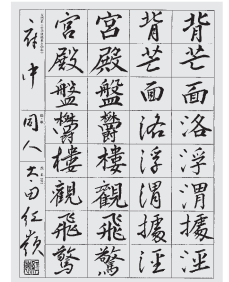 背芒面洛浮渭據涇
背芒面洛浮渭據涇
宮殿盤鬱樓觀飛驚
宮殿盤鬱樓觀飛驚
同人